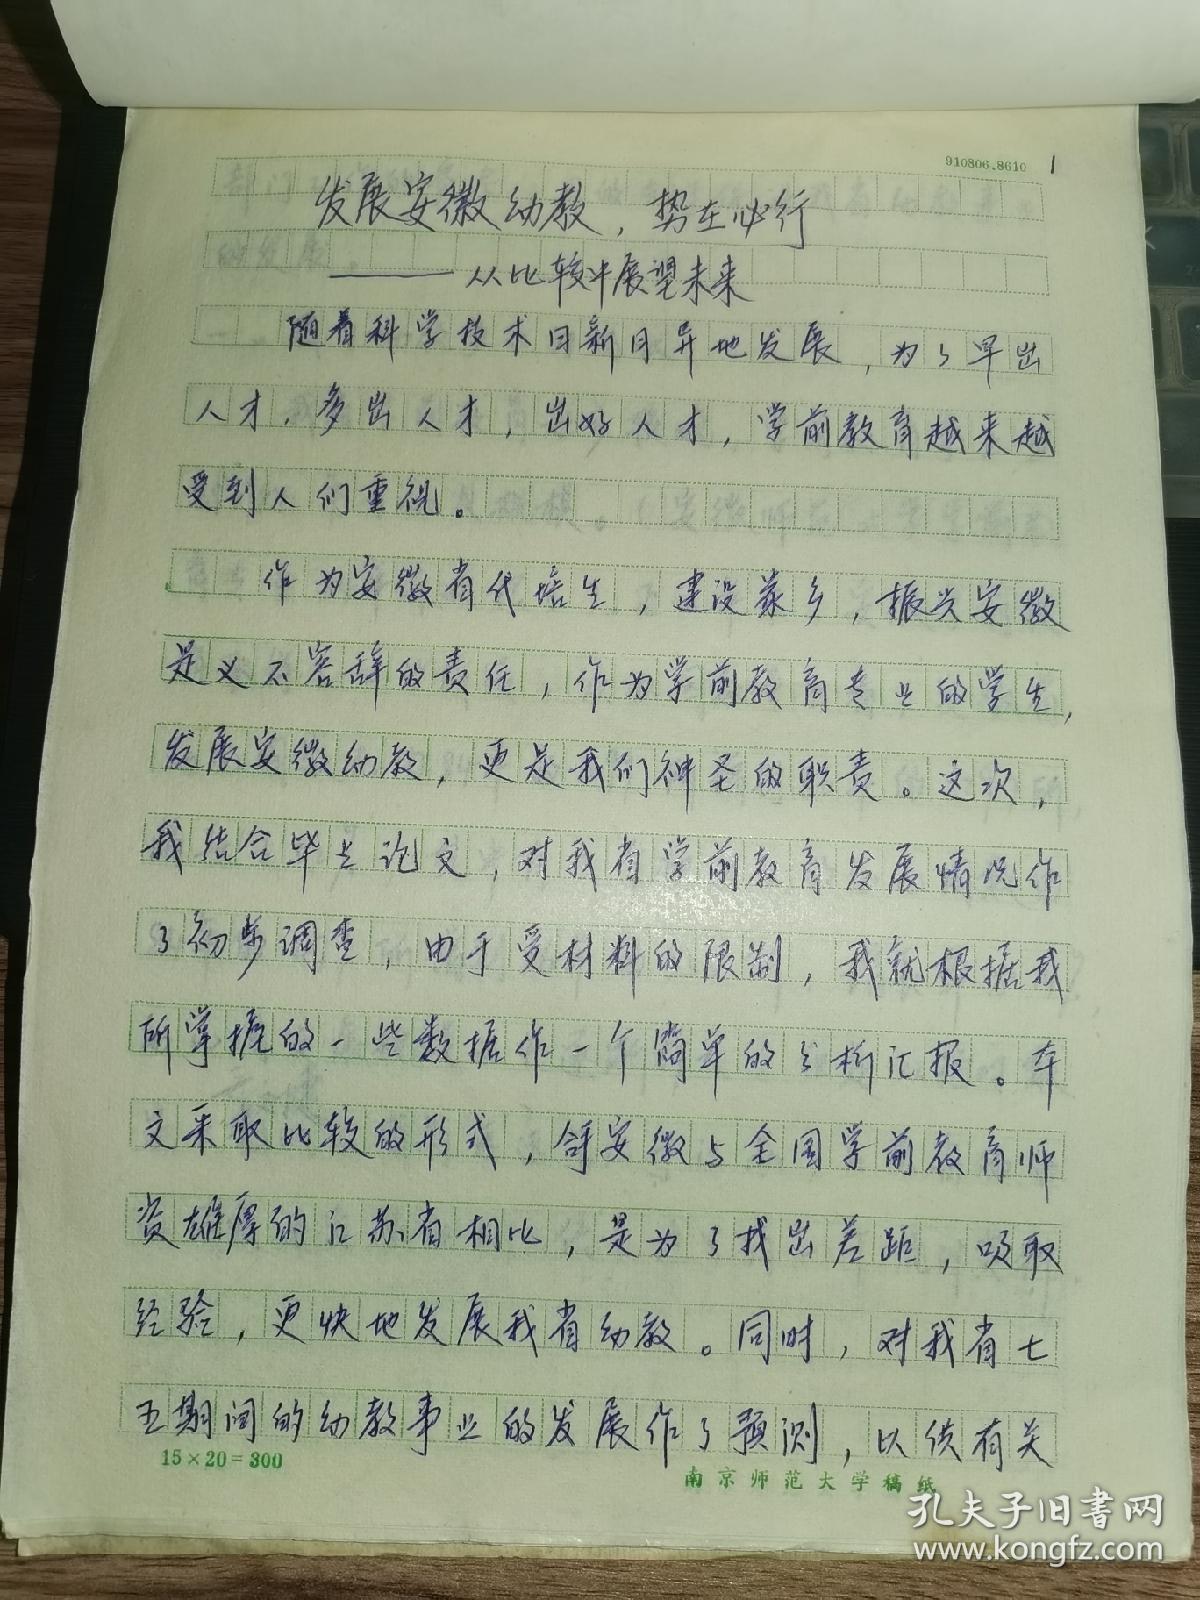 910806.8610
1
发展安徽幼教，势在必行
——从比较中展望未来
随着科学技术日新月异地发展，为了早出
人才，多出人才，出好人才，学前教育越来越
受到人们重视。
作为安徽省代培生，建设家乡，振兴安徽
是义不容辞的责任，作为学前教育专业的学生，
发展安徽幼教，更是我们神圣的职责。这次，
我结合毕业论文，对我省学前教育发展情况作
了初步调查，由于受材料的限制，我就根据我
所掌握的一些数据作一个简单的分析汇报。本
文采取比较的形式，将安徽与全国学前教育师
资雄厚的江苏省相比，是为了找出差距，吸取
经验，更快地发展我省幼教。同时，对我省七
五期间的幼教事业的发展作了预测，以供有关
15×20=300
南京师范大学稿纸
孔夫子旧书网
www.kongfz.com